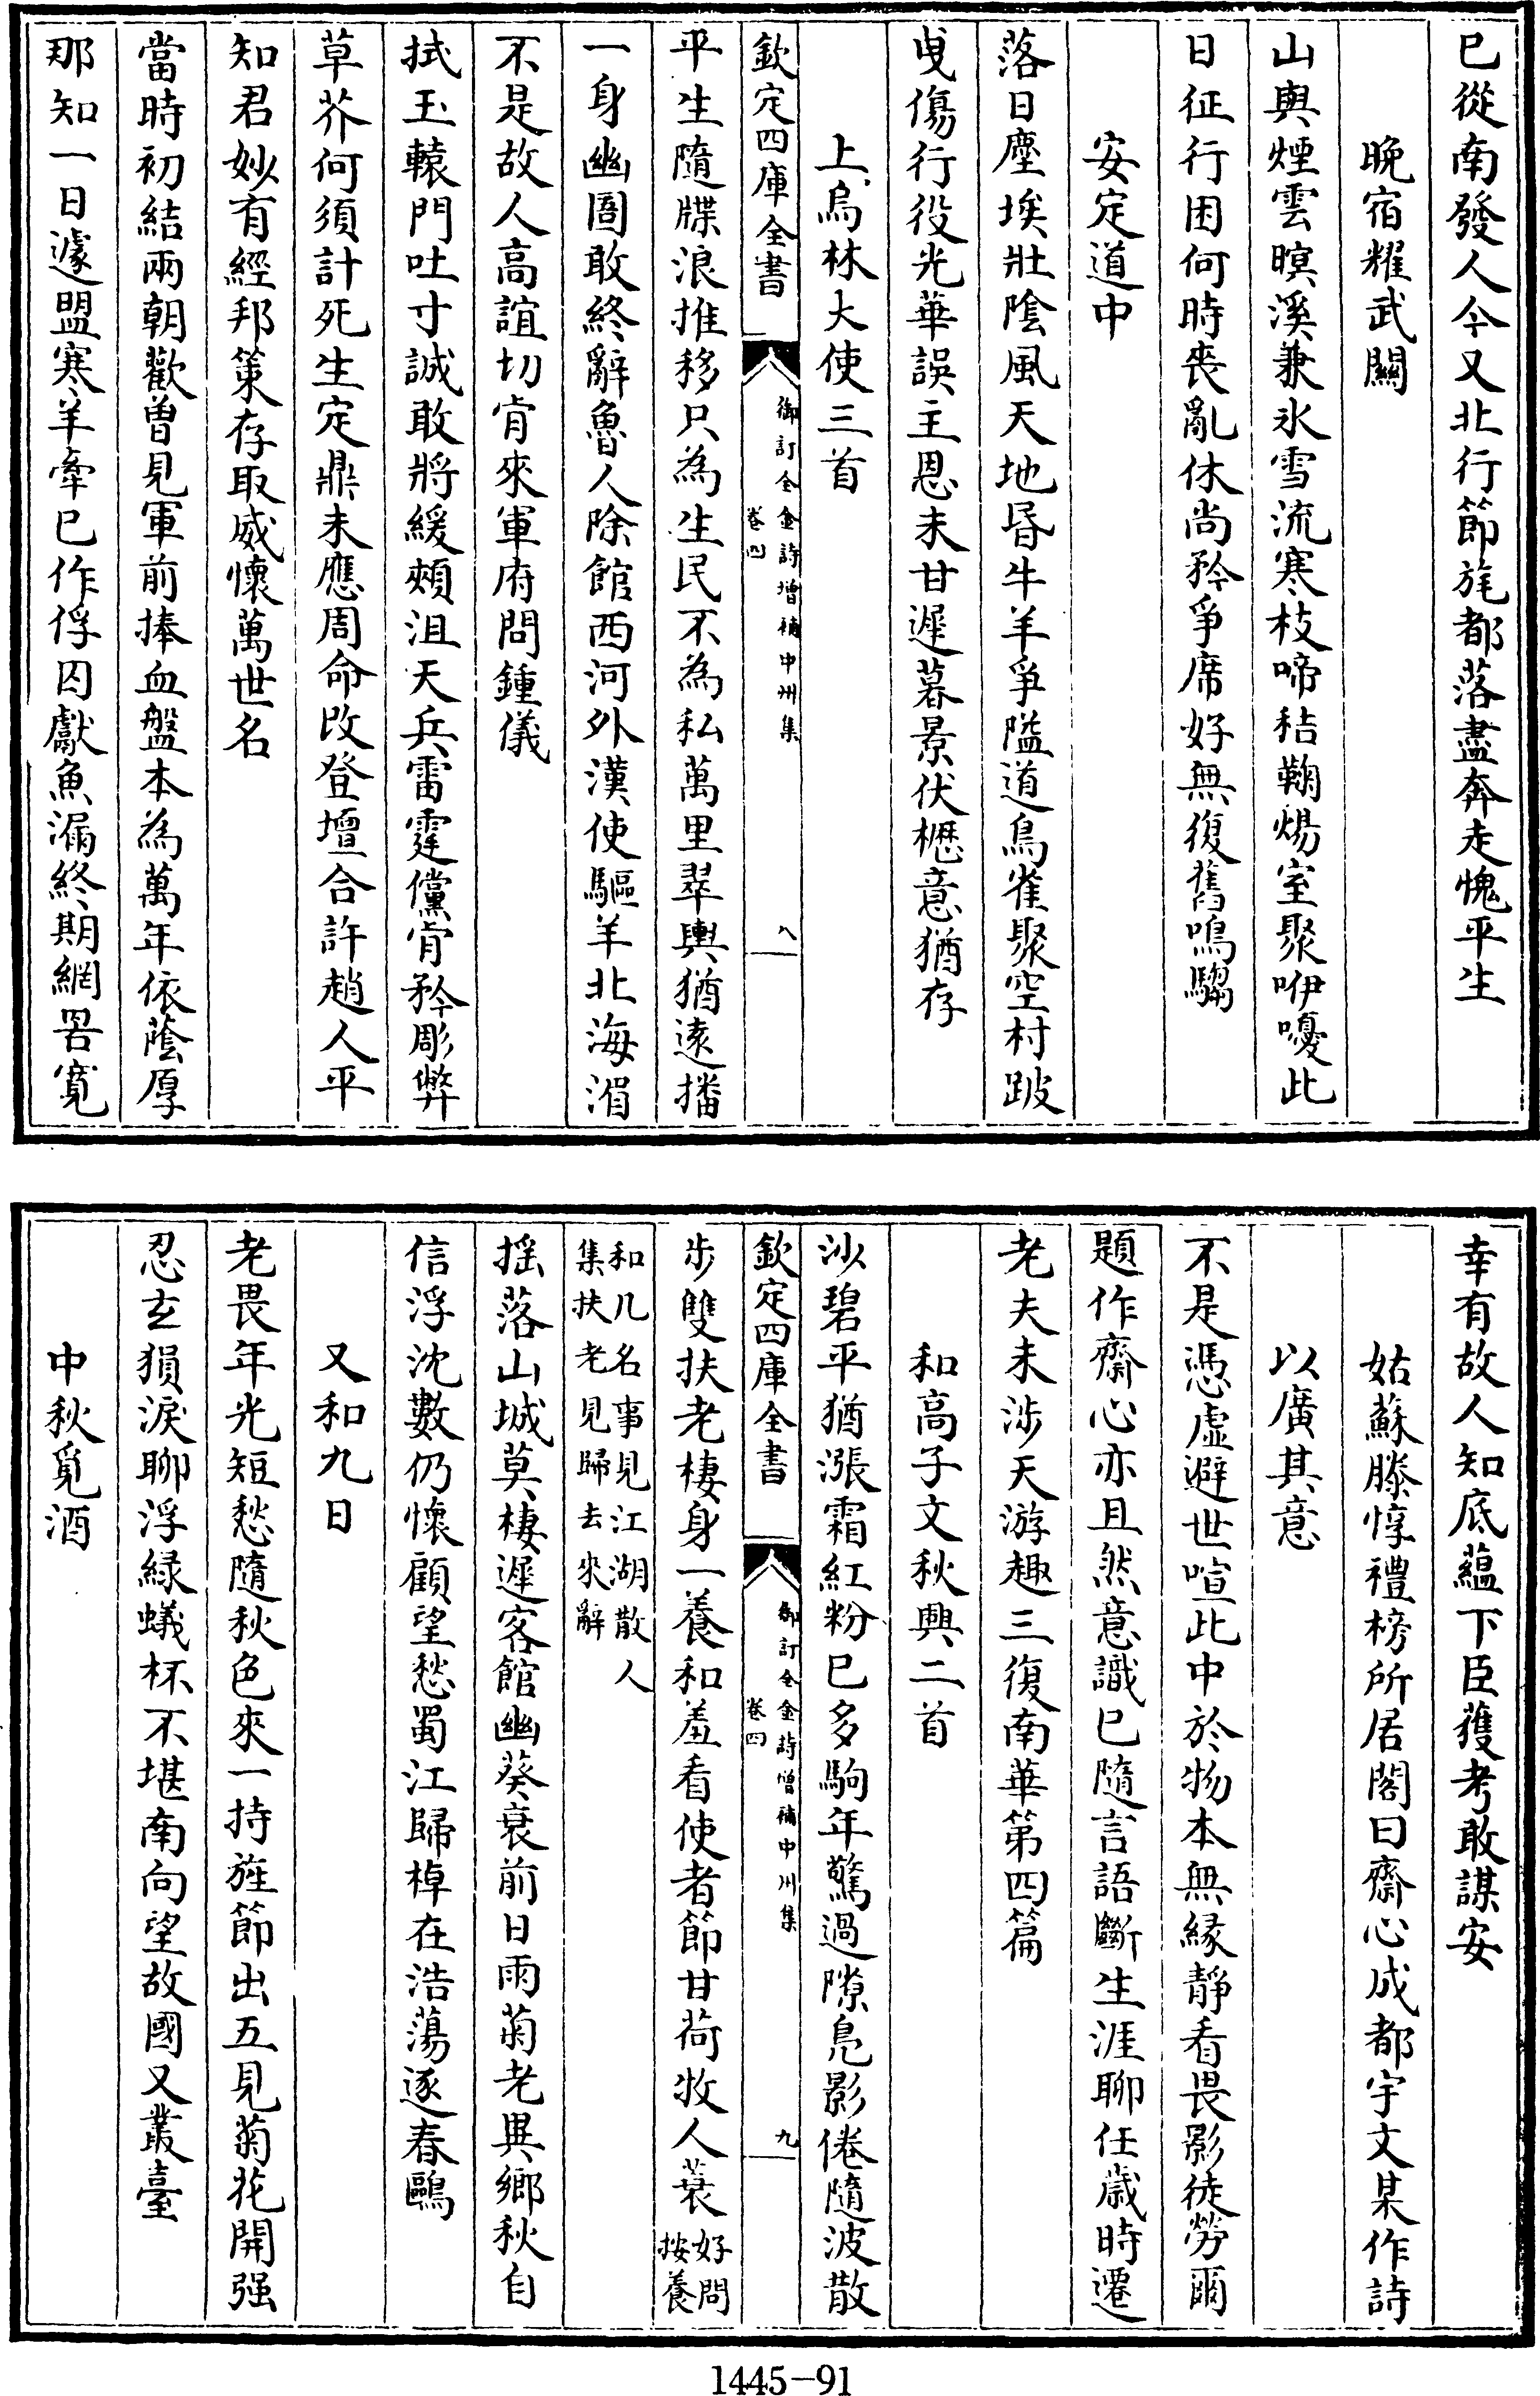 已從南發人今又北行節旄都落盡奔走愧平生
晚宿耀武關
山輿煙雲暝溪兼氷雪流寒枝啼秸鞠煬室聚咿嚘此
日征行困何時喪亂休尚矜爭席好無復舊鳴騶
安定道中
落日塵埃壯陰風天地昏牛羊爭隘道鳥雀聚空村跛
曳傷行役光華誤主恩未甘遲暮景伏櫪意猶存
上烏林大使三首
欽定四庫全書
御訂全金詩增補中州集
卷四
八
平生隨牒浪推移只為生民不為私萬里翠輿猶逺播
一身幽圄敢終辭魯人除館西河外漢使驅羊北海湄
不是故人高誼切肯來軍府問鍾儀
拭玉轅門吐寸誠敢將緩頰沮天兵雷霆儻肯矜彫弊
草芥何須計死生定鼎未應周命改登壇合許趙人平
知君妙有經邦策存取威懷萬世名
當時初結兩朝歡曽見軍前捧血盤本為萬年依蔭厚
那知一日遽盟寒羊牽已作俘囚獻魚漏終期網罟寛
幸有故人知底藴下臣獲考敢謀安
姑蘇滕惇禮榜所居閣曰齋心成都宇文某作詩
以廣其意
不是憑虚避世喧此中於物本無縁靜看畏影徒勞爾
題作齋心亦且然意識已隨言語斷生涯聊任歲時遷
老夫未涉天游趣三復南華第四篇
和高子文秋興二首
沙碧平猶漲霜紅粉已多駒年驚過隙鳬影倦隨波散
欽定四庫全書
御訂全金詩增補中州集
卷四
九
步雙扶老棲身一養和羞看使者節甘荷牧人蓑 好問按養
和几名事見江湖散人
集扶老見歸去來辭
揺落山城莫棲遲客館幽葵衰前日雨菊老異鄉秋自
信浮沈數仍懷顧望愁蜀江歸棹在浩蕩逐春鷗
又和九日
老畏年光短愁隨秋色來一持旌節出五見菊花開强
忍玄猿淚聊浮緑蟻杯不堪南向望故國又叢臺
中秋覓酒
1445-91